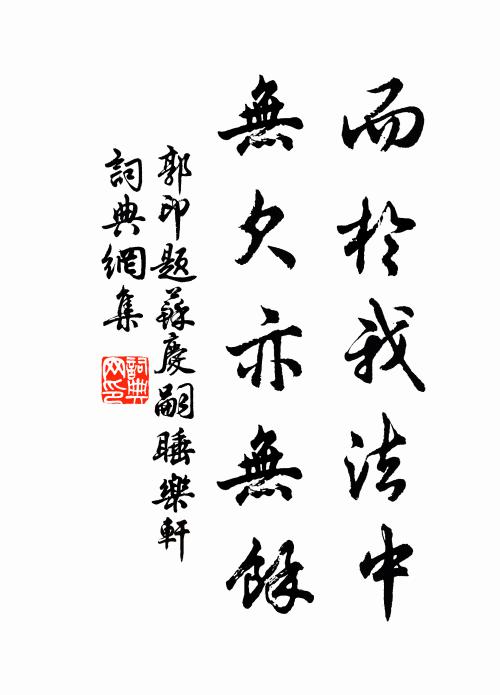 而於我法中
無欠亦無餘
郭印題蘇慶嗣睡樂軒
詞典網集
詞典网印